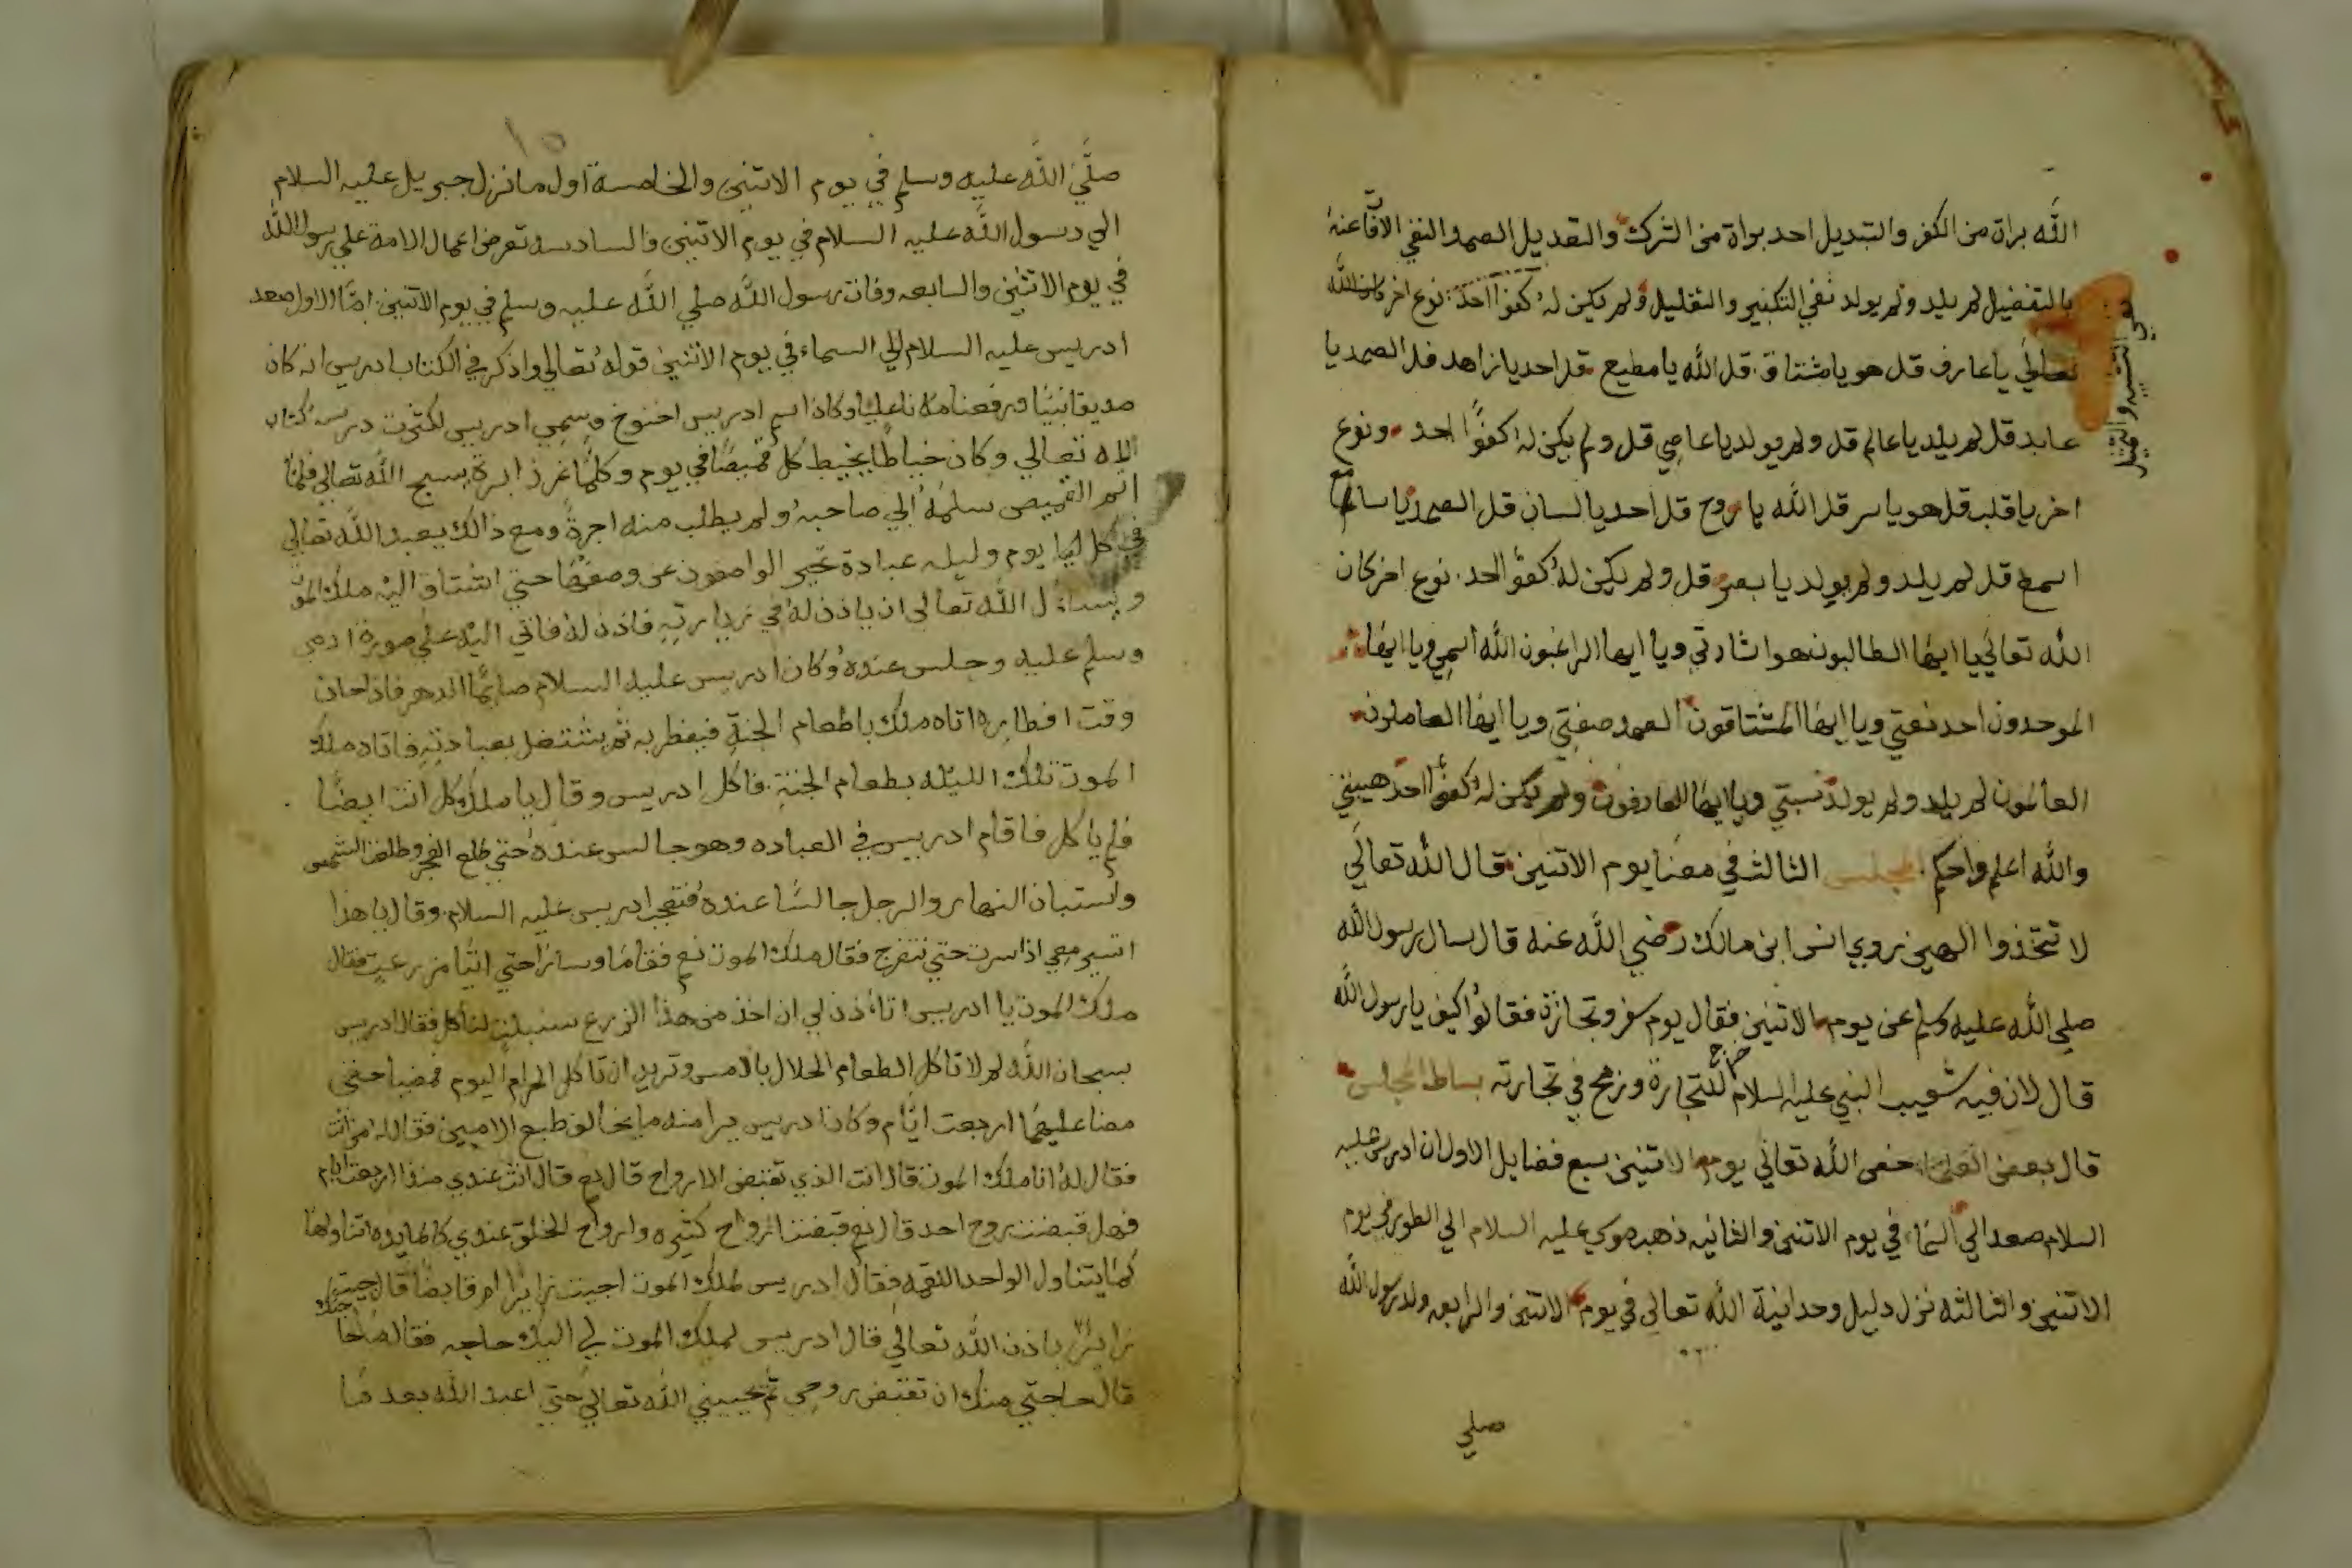 الله براة من الكفر والتبديل احد براة من الشرك والتعديل الصمد النفي الافاعنه
بالتفضيل لم يلد ولم يولد نفي التكثير والتقليل ولم يكن له كفوا احد نوع اخر كان الله
نفي التشبيه والتمثيل
تعالي يا عارف قل هو يا مشتاق قل الله يا مطيع قل احد يا زاهد قل الصمد يا
عابد قل لم يلد يا عالم قل ولم يولد يا عاصي قل ولم يكن له كفوًا احد ونوع
اخر يا قلب قل هو يا سر قل الله يا روح قل احد يا لسان قل الصمد يا سامع
اسمع قل لم يلد ولم يولد يا بصر قل ولم يكن له كفؤ احد نوع اخر كان
الله تعالي يا ايها الطالبون هو اشارتي ويا ايها الراغبون الله اسمي ويا ايها
الموحدون احد نعتي ويا ايها المشتاقون الصمد صفتي ويا ايها العاملون
العالمون لم يلد ولم يولد نسبتي ويا ايها العارفون ولم يكن له كفوا احد هيبتي
والله اعلم واحكم المجلس الثالث في معنا يوم الاتنين قال الله تعالي
لا تتخذوا الهين روي انس ابن مالك رضي الله عنه قال سال رسول الله
صلي الله عليه وسلم عن يوم الاتنين فقال يوم سفر وتجارة فقالوا كيف يا رسول الله
قال لان فيه خرج شعيب النبي عليه السلام للتجارة وربح في تجارته بساط المجلس
قال بعض العلما خص الله تعالي يوم الاتنين بسبع فضايل الاول ان ادريس عليه
السلام صعد الي السماء في يوم الاتنين والثانيه ذهب موسي عليه السلام الي الطور في يوم
الاتنين والثالثه نزل دليل وحدانية الله تعالي في يوم الاتنين والرابعه ولد رسول الله
صلي
١٥
صلَّي الله عليه وسلم في يوم الاتنين والخامسة اول ما نزل جبريل عليه السلام
الي رسول الله عليه السلام في يوم الاتنين والسادسه تعرض اعمال الامة علي رسول الله
في يوم الاتنين والسابعه وفات رسول الله صلي الله عليه وسلم في يوم الاتنين امّا الاول صعد
ادريس عليه السلام الي السماء في يوم الاتنين قوله تعالي واذكر في الكتاب ادريس انه كان
صديقا نبيًا ورفعناه مكانا عليا وكان اسم ادريس اخنوخ وسمي ادريس لكثرت درسه كتاب
الله تعالي وكان خياطًا يخيط كل قميصًا في يوم وكلما غرز ابرة يسبح الله تعالي فلمّا
اتم القميص سلمه الي صاحبه ولم يطلب منه اجرةً ومع ذالك يعبد الله تعالي
في كل يوم وليله عبادة تحير الواصفون عن وصفها حتي اشتاق اليه ملك الموت
وسال الله تعالي ان ياذن له في زيارته فاذن له فاتي اليه علي صورة ادمي
وسلم عليه وجلس عنده وكان ادريس عليه السلام صايمًا الدهر فاذا حان
وقت افطاره اتاه ملك باطعام الجنة فيفطر به ثم يشتغل بعبادته فاتاه ملك
الموت تلك الليله بطعام الجنة فاكل ادريس وقال يا ملك كل انت ايضًا
فلم ياكل فاقام ادريس في العباده وهو جالس عنده حتي طلع الفجر وطلعت الشمس
واستبان النهار والرجل جالسًا عنده فتعجب ادريس عليه السلام وقال يا هذا
اتسير معي اذا سرت حتي نتفرج فقال ملك الموت نعم فقاما وسارا حتي اتيا مزرعت فقال
ملك الموت يا ادريس اتاءذن لي ان اخذ من هذا الزرع سنبلت لناكل فقال ادريس
سبحان الله لم لا تاكل الطعام الحلال بالامس وتريد ان تاكل الحرام اليوم فمضيا حتي
مضا عليهما اربعت ايّام وكان ادريس يرا منه ما يخالف طبع الادميين فقال له من انت
فقال له انا ملك الموت قال انت الذي تقبض الارواح قال نعم قال انت عندي منذ اربعت ايام
فهل قبضت روح احد قال نعم قبضت ارواح كثيره وارواح الخلق عندي كالمايده اتناولها
كما يتناول الواحد اللقمه فقال ادريس لملك الموت اجيت زايرًا ام قابضًا قال جيت
زايرًا باذن الله تعالي قال ادريس لملك الموت لي اليك حاجه فقال ما حاجتك
قال حاجتي منك ان تقبض روحي ثم يحييني الله تعالي حتي اعبد الله بعد ما